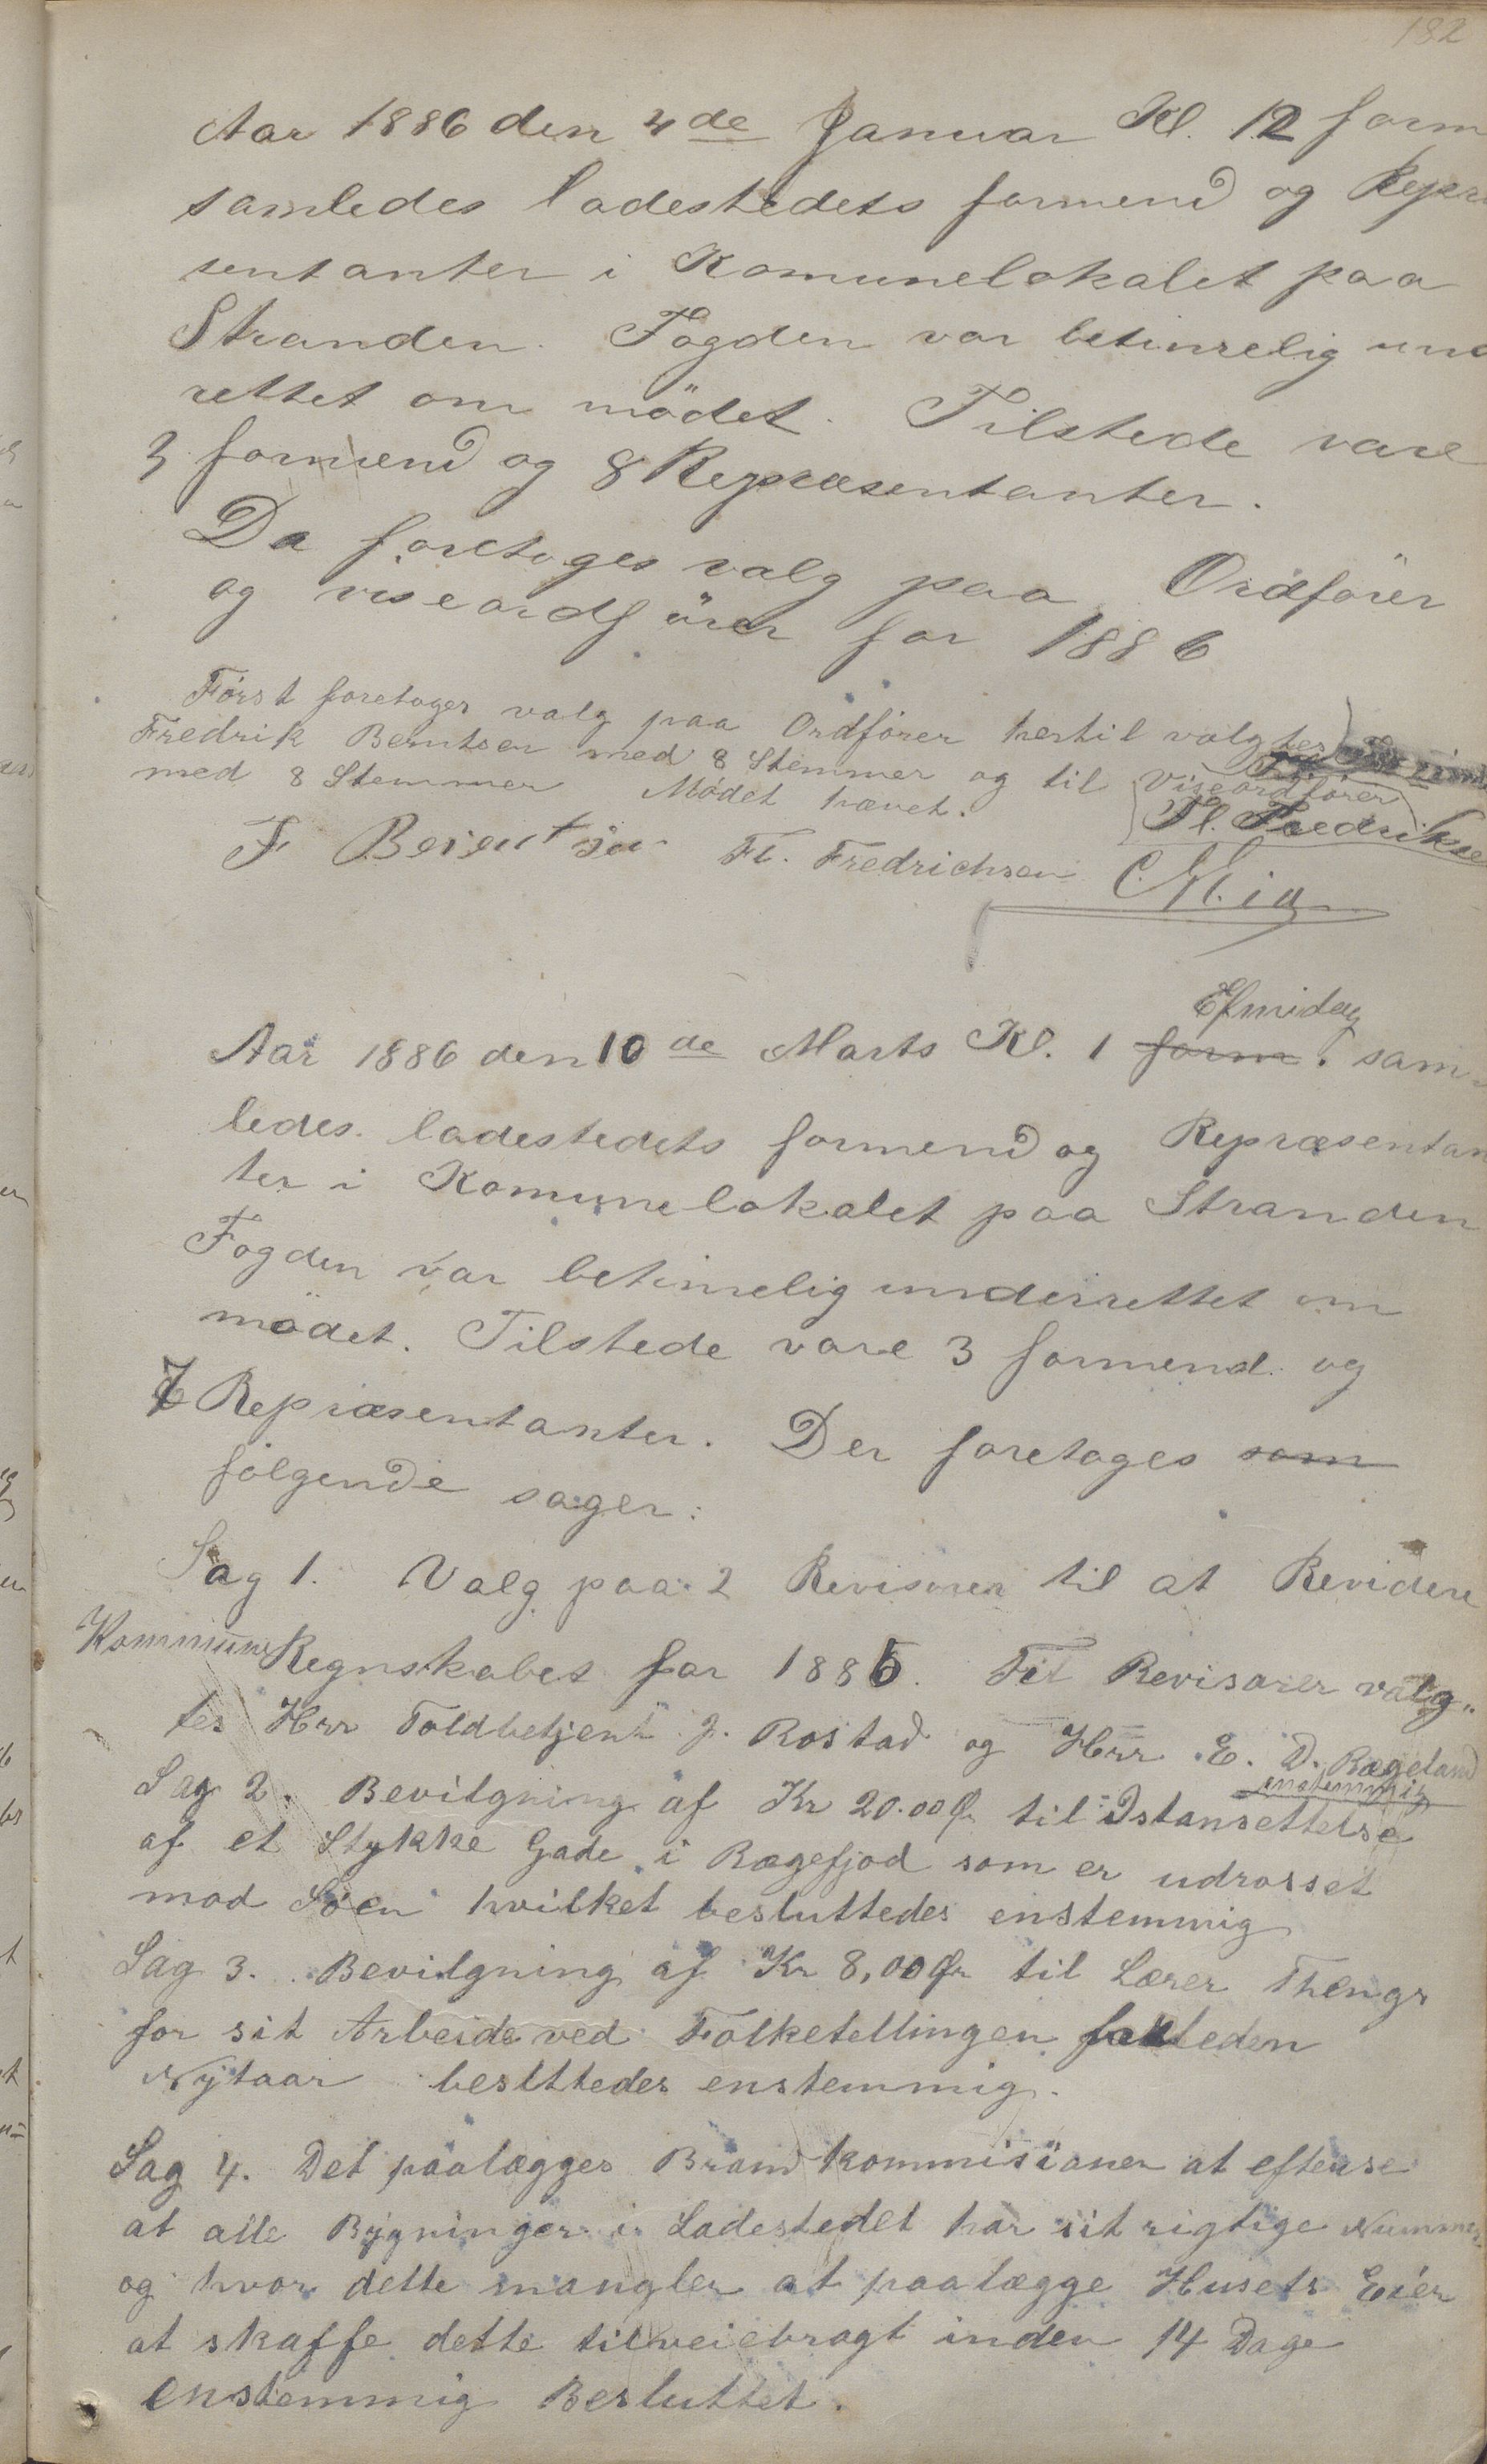 182
Aar 1886 den 4de Januar Kl. 12 form
samledes ladestedets formend og Repræ
sentanter i Komunelokalet paa
Stranden. Fogden var betimelig und
rettet om mödet. Tilstede vare
3 formend og 8 Repræsentanter.
Da foretoges valg paa Ordförer
og viseordförer for 1886
Først foretoges valg paa Ordfører hertil valgtes
Fredrik Berntsen med 8 Stemmer og til Viseordfører
Fl. Fredrikse
med 8 Stemmer Mødet hævet.
F Berentsen Fl. Fredrichsen
Efmidag
Aar 1886 den 10de Marts Kl. 1 form. sam-
ledes ladestedets formend og Repræsentan
ter i Komunelokalet paa Stranden
Fogden var betimelig underrettet om
mödet. Tilstede vare 3 formend og
7 Repræsentanter. Der foretoges som
følgende sager:
Sag 1. Valg paa 2 Revisorer til at Revidere
Kommune Regnskabet for 1885. Til Revisorer valg-
tes Hrr Toldbetjent J. Rostad og Hrr E. D. Rægeland
enstemmig
Sag 2. Bevilgning af Kr 20.00 Ør til Istansettelse
af et Stykke Gade i Rægefjod som er udrasset
mod Søen hvilket besluttedes enstemmig
Sag 3. Bevilgning af Kr 8,00 Ør til Lærer Thengs
for sit Arbeide ved Folketellingen forleden
Nytaar beslttedes enstemmig.
Sag 4. Det paalægges Brandkommisioner at efterse
at alle Bygninger i Ladestedet har sit rigtige Nummer
og hvor dette mangler at paalægge Husets Eier
at skaffe dette tilveiebragt inden 14 Dage
enstemmig Besluttet.